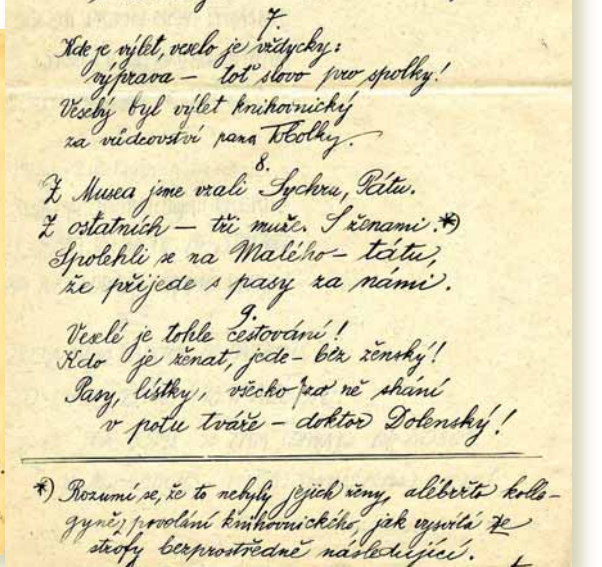 7.
Kde je výlet, veselo je vždycky:
výprava — toť slovo pro spolky!
Veselý byl výlet knihovnický
za vůdcovství pana Tobolky.
8.
Z Musea jsme vzali Sychru, Pátu.
Z ostatních — tři muže. S ženami.*)
Spolehli se na Malého - tátu,
že přijede s pasy za námi.
9.
Veselé je tohle cestování!
Kdo je ženat, jede - bez ženský!
Pasy, lístky, všecko za ně shání
v potu tváře - doktor Dolenský!
*) Rozumí se, že to nebyly jejich ženy, alébržto kolle-
gyně povolání knihovnického, jak vysvítá ze
strofy bezprostředně následující.